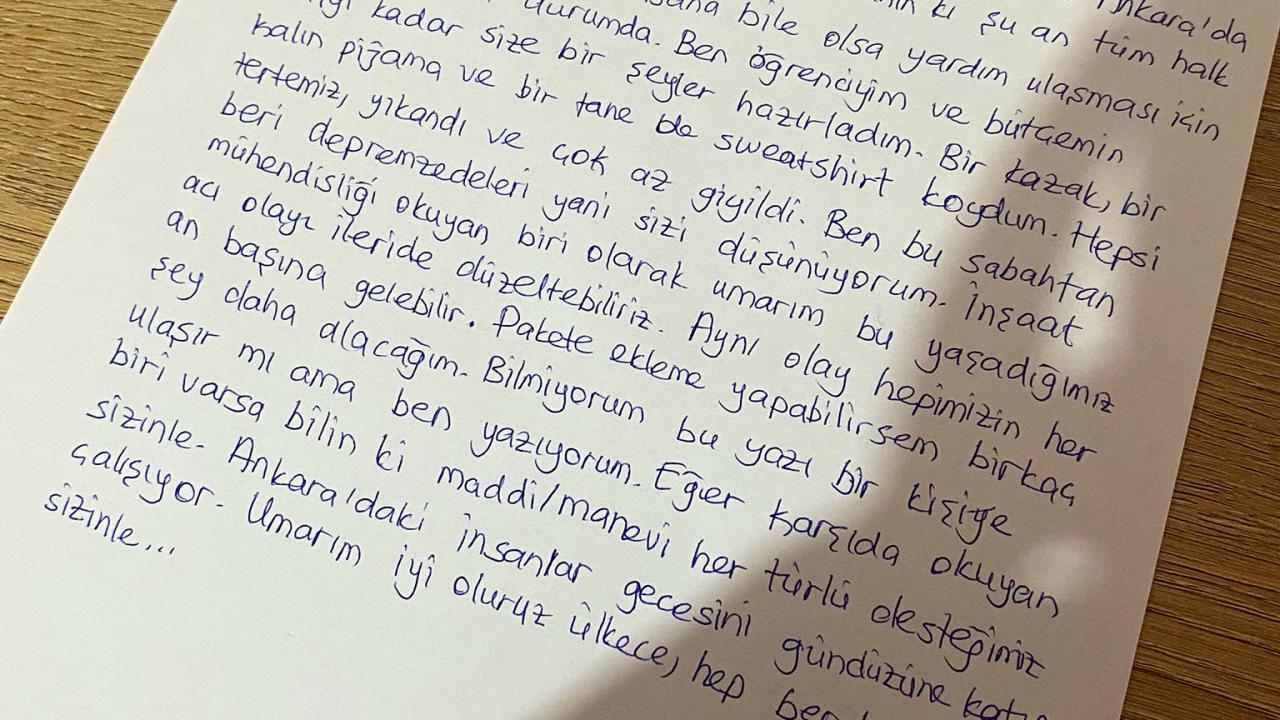 Ankara'da
ki şu an tüm halk
bile olsa yardım ulaşması için
durumda. Ben öğrenciyim ve bütçemin
kadar size bir şeyler hazırladım. Bir kazak, bir
kalın pijama ve bir tane de sweatshirt koydum. Hepsi
tertemiz, yıkandı ve çok az giyildi. Ben bu sabahtan
beri depremzedeleri yani sizi düşünüyorum. İnşaat
mühendisliği okuyan biri olarak umarım bu yaşadığımız
acı olayı ileride düzeltebiliriz. Aynı olay hepimizin her
an başına gelebilir. Pakete ekleme yapabilirsem birkaç
şey daha alacağım. Bilmiyorum bu yazı bir kişiye
ulaşır mı ama ben yazıyorum. Eğer karşıda okuyan
biri varsa bilin ki maddi/manevi her türlü desteğimiz
sizinle. Ankara'daki insanlar gecesini gündüzüne
çalışıyor. Umarım iyi oluruz ülkece, hep
sizinle...